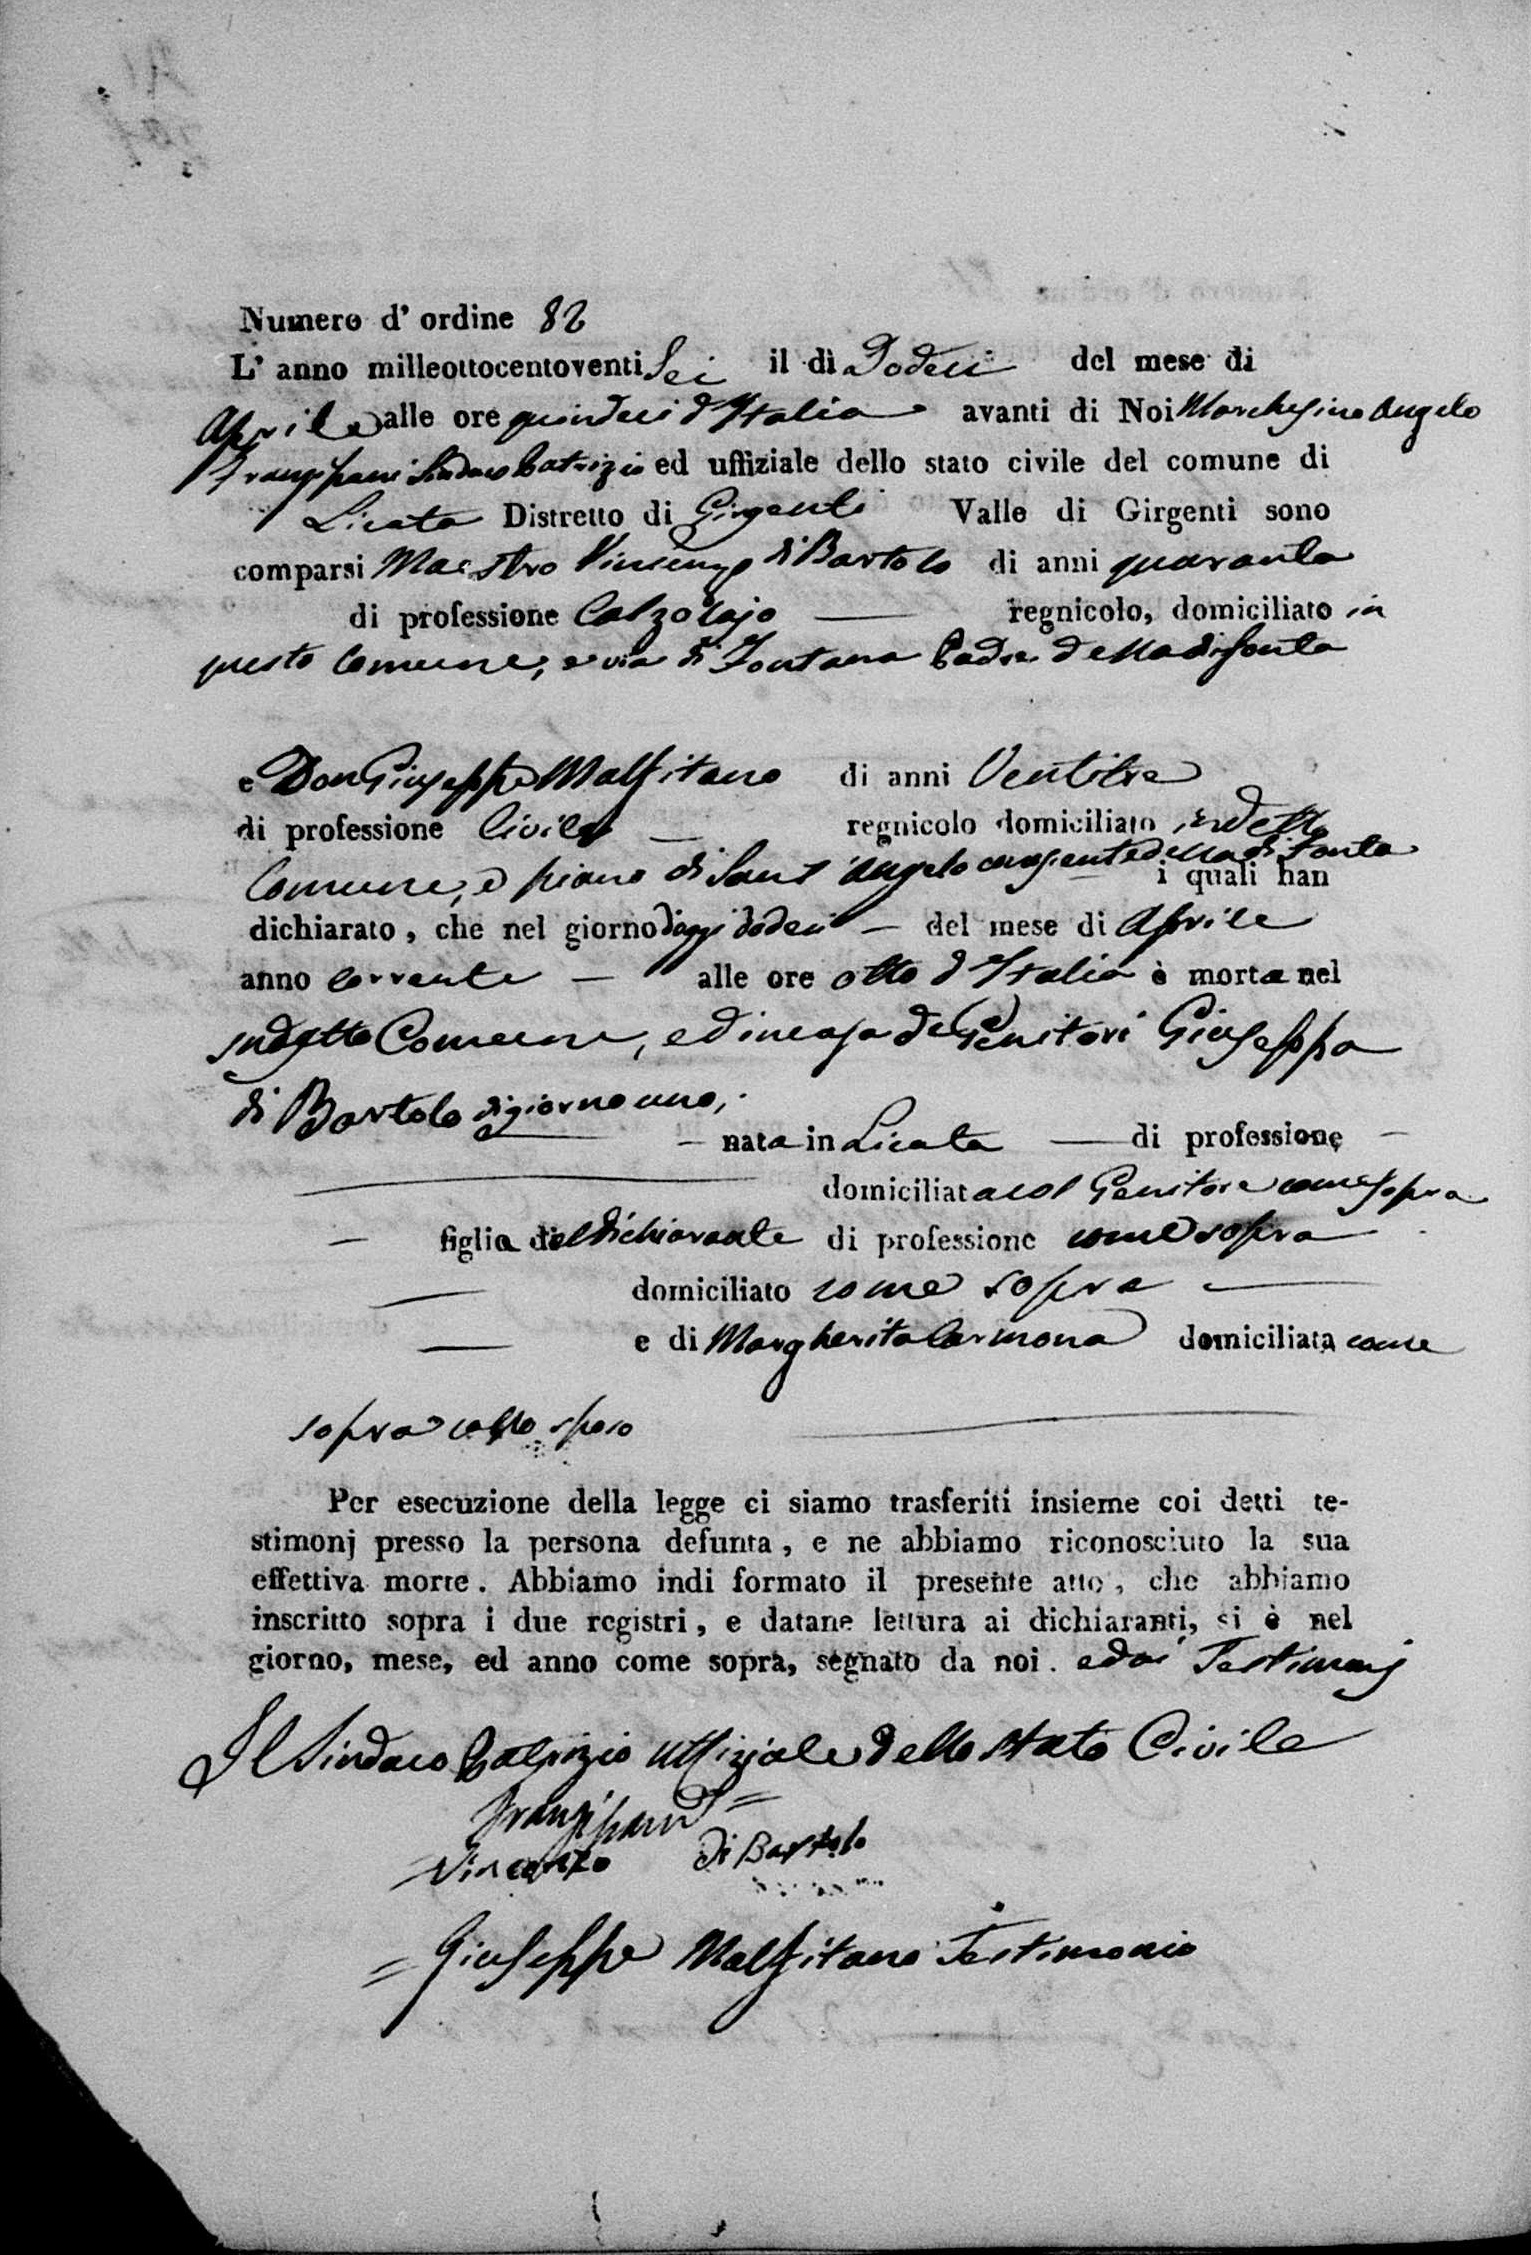 Numero d' ordine 82
L' anno milleottocentoventi Sei il dì Dodeci del mese di
Aprile alle ore quindeci d'Italia avanti di Noi Marchesino Angelo
Frangipani Sindaco Patrizio ed uffiziale dello stato civile del comune di
Licata Distretto di Girgenti Valle di Girgenti sono
comparsi Maestro Vincenzo di Bartolo di anni quaranta
di professione Calzolajo regnicolo, domiciliato in
questo Comune, e via di Fontana Padre della difonta
e Don Giuseppe Malfitano di anni Ventitre
di professione Civile regnicolo domiciliato in detto
Comune, e piano di Sant'Angelo della difonta
i quali han
dichiarato, che nel giorno d'oggi dodeci del mese di Aprile
anno corrente alle ore otto d'Italia è morta nel
sudetto Comune, ed in casa de Genitori Giuseppa
di Bartolo di giorno uno,
nata in Licata di professione
domiciliata col Genitore come sopra
figlia del dichiarante di professione come sopra
domiciliato come sopra
e di Margherita Carmona domiciliata come
sopra collo sposo
Per esecuzione della legge ci siamo trasferiti insieme coi detti te-
stimonj presso la persona defunta, e ne abbiamo riconosciuto la sua
effettiva morte. Abbiamo indi formato il presente atto, che abbiamo
inscritto sopra i due registri, e datane lettura ai dichiaranti, si è nel
giorno, mese, ed anno come sopra, segnato da noi. e dai Testimonj
Il Sindaco Patrizio Uffiziale dello stato Civile
Frangipani =
Vincenzo di Bartolo
= Giuseppe Malfitano Testimonio